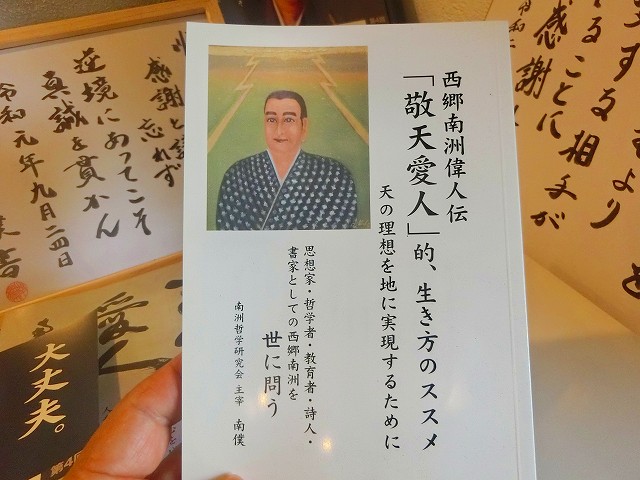 西郷南洲偉人伝
「敬天愛人」的、生き方のススメ
天の理想を地に実現するために
思想家・哲学者・教育者・詩人・
書家としての西郷南洲を
世に問う
南洲哲学研究会 主宰 南僕
感謝と
忘れず
逆境にあってこそ
真誠を貫かん
令和元年九月二四日
大丈夫。
第4回
愛人
する相手が
ることに
感謝